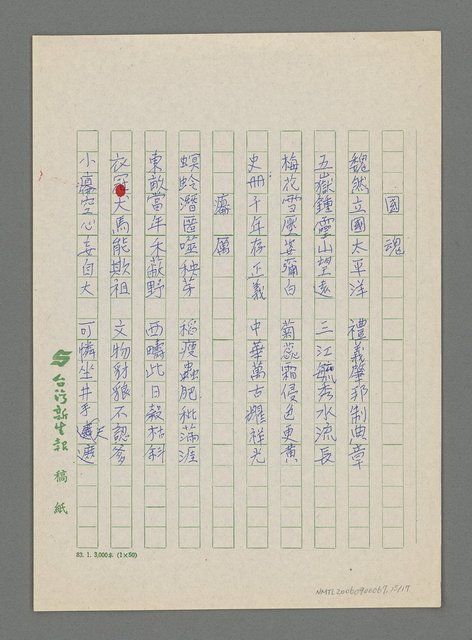 國魂
巍然立國太平洋 禮義肇邦制典章
五嶽鍾靈山望遠 三江毓秀水流長
梅花雪壓姿彌白 菊蕊霜侵色更黃
史册千年存正義 中華萬古耀祥光
螟蛉潛匿噬秧芽 稻瘦蟲肥秕滿涯
東畝當年禾蔽野 西疇此日穀枯斜
衣冠犬馬能欺祖 文物豺狼不認爹
小 空心妄自大 可憐坐井手遮天
台灣新生報 稿紙
83.1.3,000本 (1×50)
NMTL20060900067.15/17